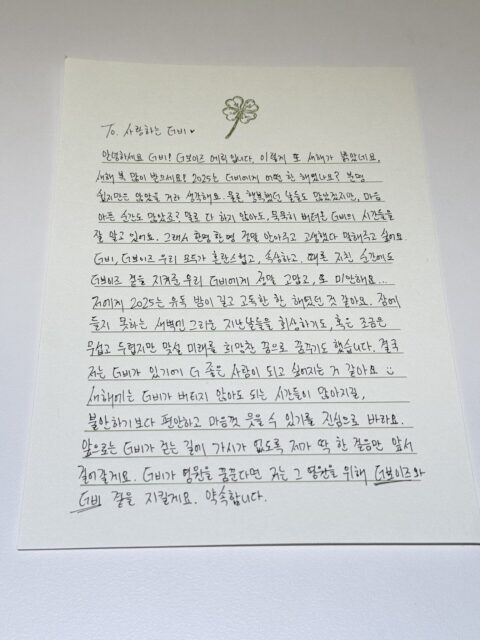 To. 사랑하는 더비♥
안녕하세요 더비! 더보이즈 에릭입니다. 이렇게 또 새해가 밝았네요.
새해 복 많이 받으세요! 2025는 더비에게 어떤 한 해였나요? 분명
쉽지만은 않았을 거라 생각해요. 물론 행복했던 날들도 많았겠지만, 마음
아픈 순간도 많았죠? 말로 다 하지 않아도, 묵묵히 버텨온 더비의 시간들을
잘 알고 있어요. 그래서 한명 한명 정말 안아주고 고생했다 말해주고 싶어요.
더비, 더보이즈 우리 모두가 혼란스럽고, 속상하고, 때론 지친 순간에도
더보이즈 곁을 지켜준 우리 더비에게 정말 고맙고, 또 미안해요...
저에게 2025는 유독 밤이 길고 고독한 한 해였던 것 같아요. 잠에
들지 못하는 새벽엔 그리운 지난날들을 회상하기도, 혹은 조금은
무섭고 두렵지만 맞설 미래를 희망찬 꿈으로 꿈꾸기도 했습니다. 결국
저는 더비가 있기에 더 좋은 사람이 되고 싶어지는 것 같아요 :)
새해에는 더비가 버티지 않아도 되는 시간들이 많아지길,
불안하기보다 편안하고 마음껏 웃을 수 있기를 진심으로 바라요.
앞으로는 더비가 걷는 길에 가시가 없도록 저가 딱 한 걸음만 앞서
걸어갈게요. 더비가 영원을 꿈꾼다면 저는 그 영원을 위해 더보이즈와
더비 곁을 지킬게요. 약속합니다.